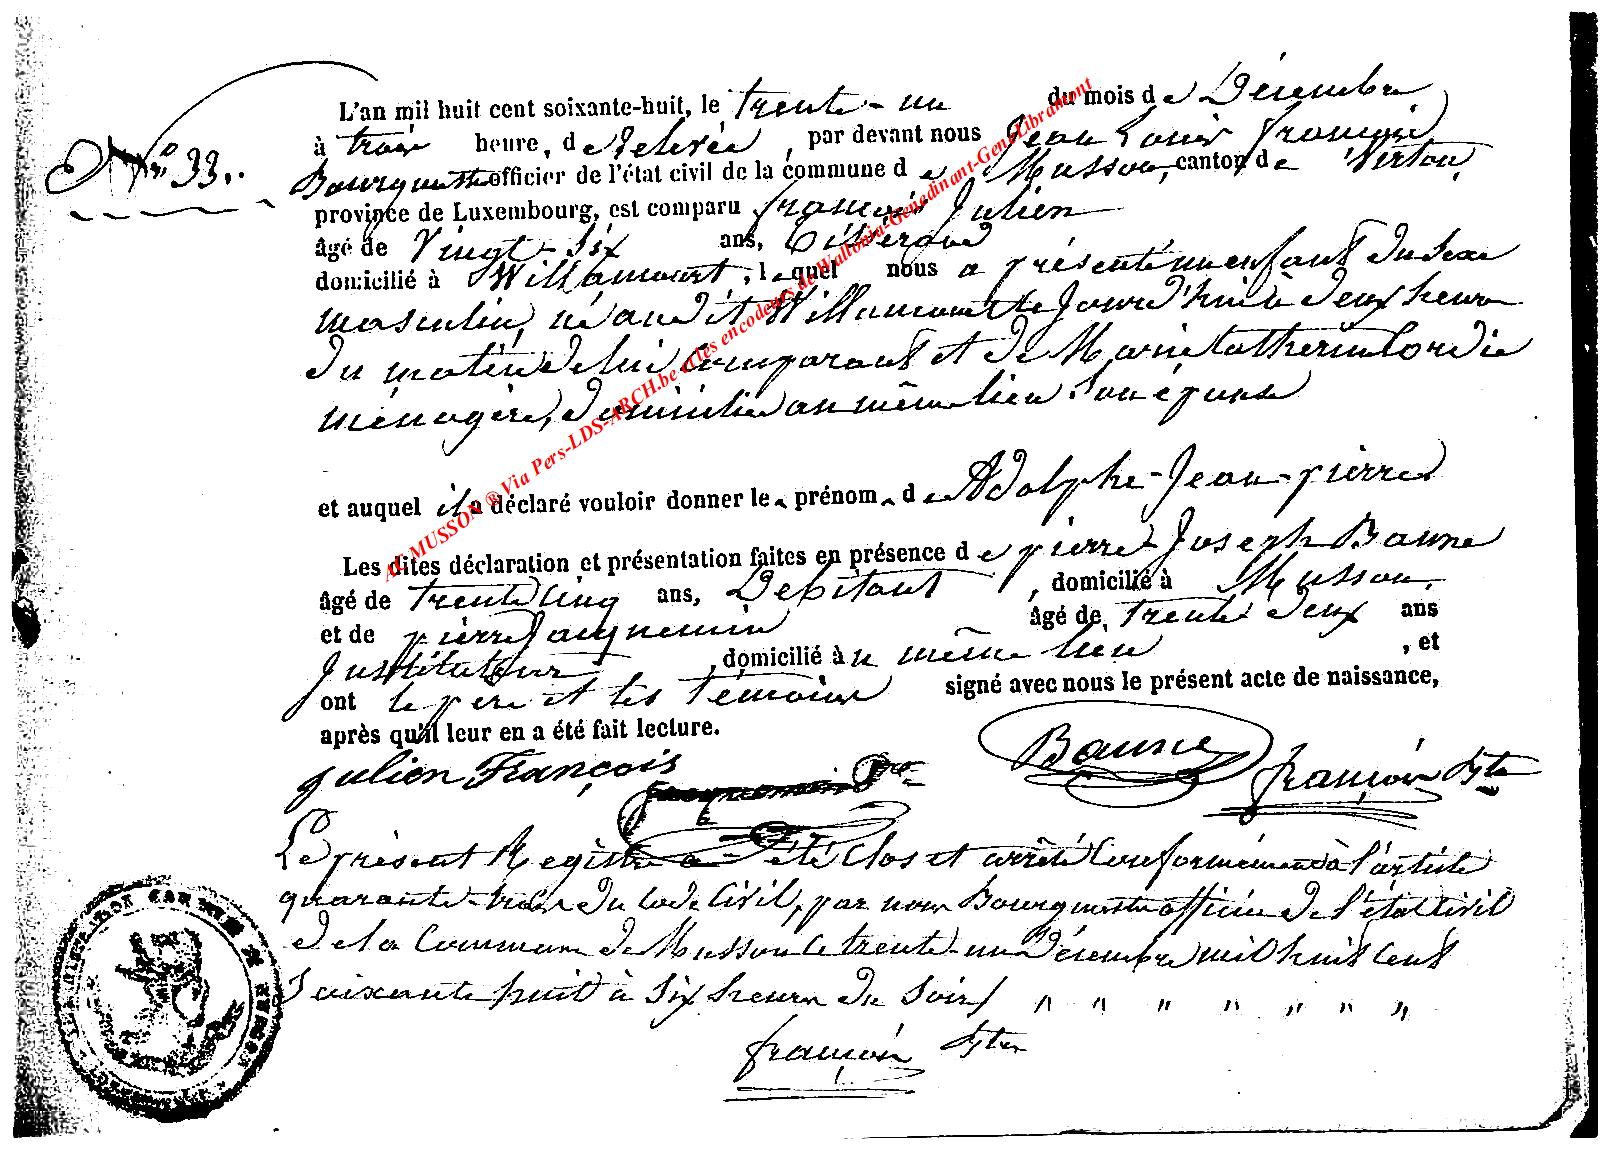 L'an mil huit cent soixante-huit, le trente-un du mois de Décembre
à trois heure, de relevée, par devant nous Jean Louis françois
N° 33.
Bourgmestre officier de l'état civil de la commune de Musson, canton de Virton,
province de Luxembourg, est comparu françois Julien
âgé de vingt-six ans,
domicilié à Willancourt, lequel nous a présenté un enfant du sexe
masculin, né audit Willancourt le jourd'hui à deux heures
du matin de lui comparant et de Marie Catherine Cordie
ménagère, domiciliée au même lieu son épouse
et auquel il a déclaré vouloir donner les prénoms de Adolphe-Jean-pierre
Les dites déclaration et présentation faites en présence de pierre-Joseph Baune
âgé de trente cinq ans, Debitant, domicilié à Musson,
et de pierre Jacquemin âgé de trente deux ans
Instituteur, domicilié au même lieu, et
ont le père et les témoins signé avec nous le présent acte de naissance,
après qu'il leur en a été fait lecture.
julien François Jacquemin Pre Baune françois
Le présent Registre a été clos et arrêté conformément à l'article
quarante-trois du code Civil, par nous Bourgmestre officier de l'état Civil
de la Commune de Musson le trente-un Décembre mil huit cent
Soixante huit à six heures du soir/ " " " " " " "
françois
AC MUSSON ® Via Pers-LDS-ARCH.be &les encodeurs de Wallonia-Genedinant-GeneLibramont